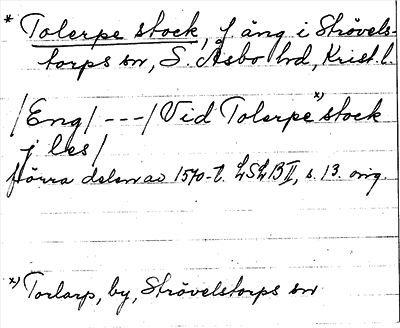 * Tolerpe stock, f äng i Strövels-
torps sn, S. Åsbo hd, Krist. l.
/Eng/ ---/ Vid Tolerpe x) stock
j les/
förra delen av 1570-t. LSLB II, s. 13. orig.
x) Torlarp, by, Strövelstorps sn